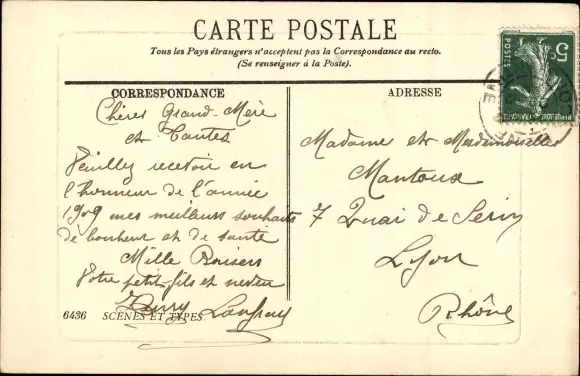 CARTE POSTALE
Tous les Pays étrangers n'acceptent pas la Correspondance au recto.
(Se renseigner à la Poste).
CORRESPONDANCE
Chères Grand-Mère
et Tantes
Veuillez recevoir en
l'honneur de l'année
1909 mes meilleurs souhaits
de bonheur et de santé
Mille Baisers
Votre petit-fils et neveu
6436 SCÈNES ET TYPES
ADRESSE
Madame et Mesdemoiselles
Mantoux
7 Quai de Serin
Lyon
Rhône
5c
POSTES
REPUBLIQUE FRANCAISE